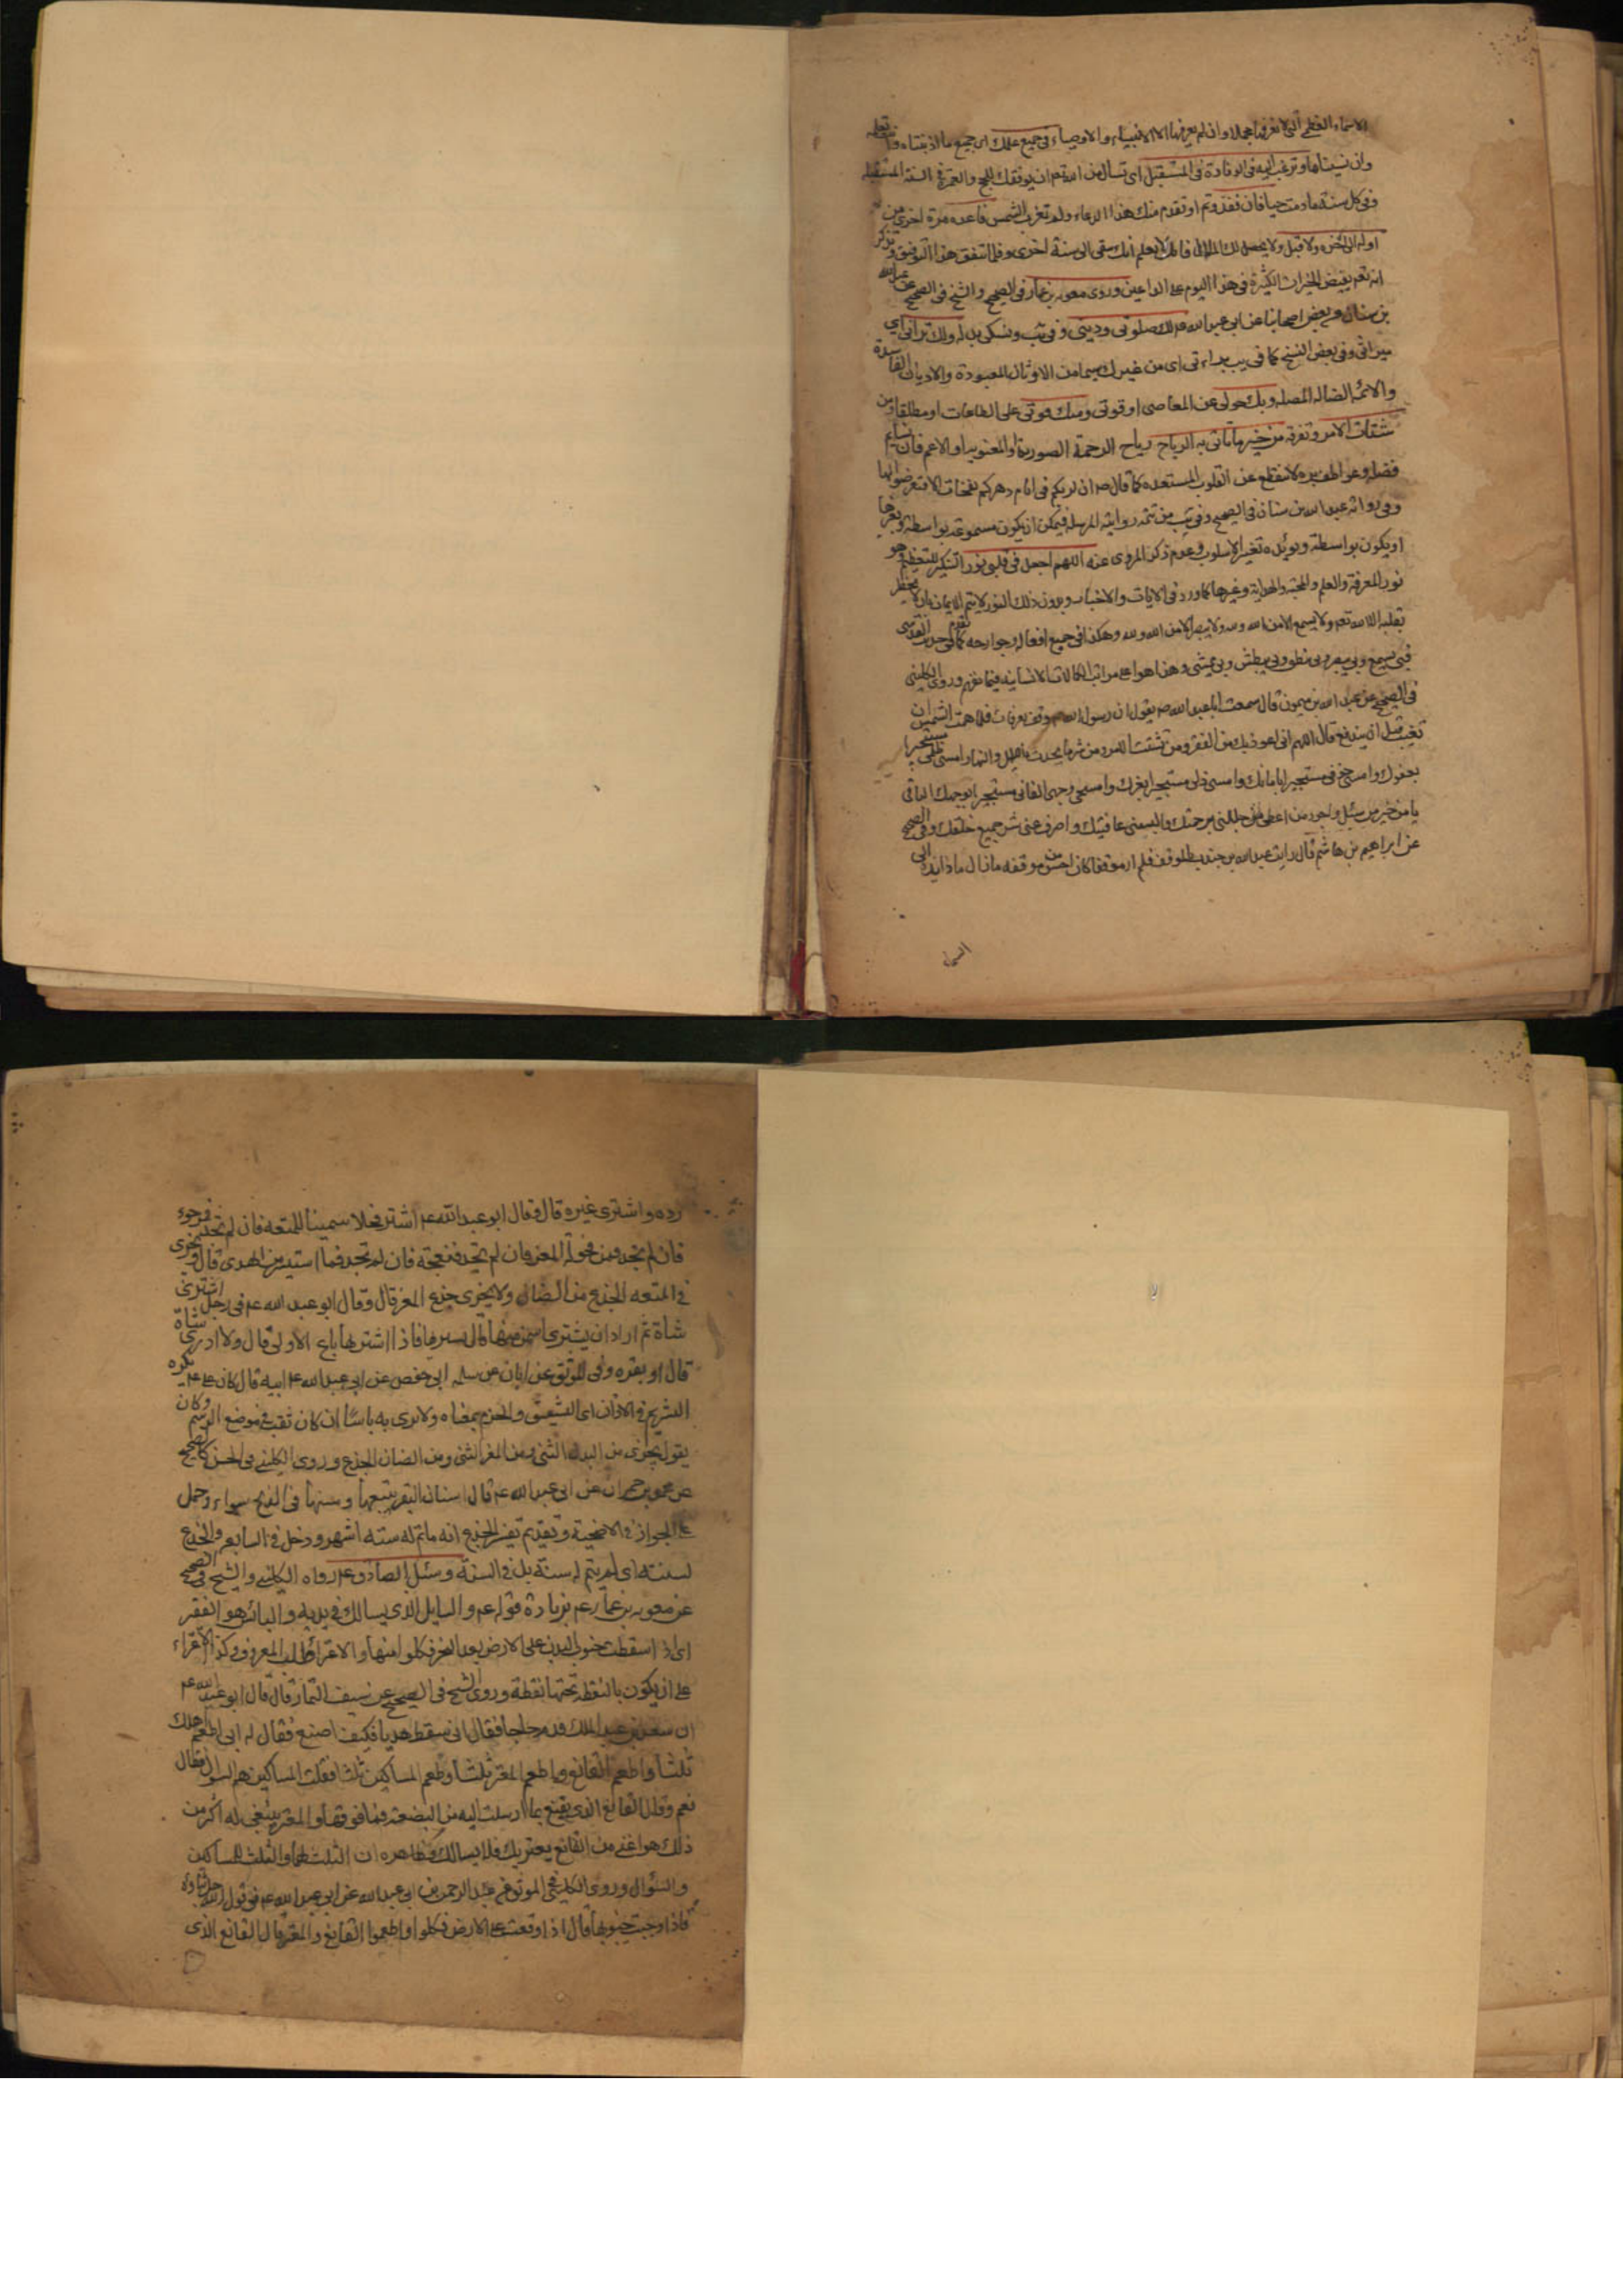 الاسماء العظمى التى لا نعرفها مجملا وان لم يعرفها الا الانبياء والاوصياء فى جميع علمك اى جميع ما اذنبناه
وان نسيناها وترغب اليه فى الوفادة فى المستقبل اى تسأل من الله تعم ان يوفقك للحج والعمرة فى السنة المستقبلة
وفى كل سنة ما دمت حيا فان نفذ وتم او تقدم منك هذا الدعاء ولم تغرب الشمس فاعده مرة اخرى من
اوله الى اخره ولا يحصل لك الملال فانك لا تعلم انك تبقى الى سنة اخرى وقلما تتفق هذا التوفيق وتذكر
انه تعم يفيض الخيرات الكثيرة فى هذا اليوم على الداعين وروى معوية بن عمار فى الصحيح والشيخ فى الصحيح عن عبد الله
بن سنان وبعض اصحابنا عن ابى عبد الله عم لك صلوتى ودينى وفى يب ونسكى بدله ولك تراثى اى
ميراثى وفى بعض النسخ كما فى يب براءتى اى من غيرك سيما من الاوثان المعبودة والاديان الفاسدة
والائمة الضاله المضله وبك حولى عن المعاصى او قوتى ومنك قوتى على الطاعات او مطلقا ومن
شتات الامر وتفرقه من خير ما تأتى به الرياح رياح الرحمة الصورية او المعنوية او الاعم فان نسايم
فضله وعواطف بره لا تنقطع عن القلوب المستعده كما قال ص ان لربكم فى ايام دهركم نفحات الا فتعرضوا لها
وفى رواية عبد الله بن سنان فى الصحيح وفى يب من تتمه روايته المرسله فيمكن ان يكون مسموعه بواسطة وبغيرها
او يكون بواسطة ويؤيده تغير الاسلوب وعدم ذكر المروى عنه اللهم اجعل فى قلبى نورا التنكير للتعظيم وهو
نور المعرفة والعلم والمحبة والهداية وغيرها كما ورد فى الايات والاخبار وبدون ذلك النور لا يتم الايمان بان لا يخطر
بقلبه الا الله تعم ولا يسمع الا من الله ولله ولا يبصر الا من الله ولله وهكذا فى جميع افعاله وجوارحه كما تقدم فى حديث القدسى
فبى يسمع وبى يبصر وبى ينطق وبى يبطش وبى يمشى وهذا هو اعلى مراتب الكمالات الانسانية فيما نفهم وروى الكلينى
فى الصحيح عن عبد الله بن ميمون قال سمعت ابا عبد الله ع يقول ان رسول الله ص وقف بعرفات فلما همت الشمس ان
تغيب قبل ان يندفع قال اللهم انى اعوذ بك من الفقر ومن تشتت الامر ومن شر ما يحدث بالليل والنهار امسى ظلمى مستجيرا
بعفوك وامسى خوفى مستجيرا بامانك وامسى ذلى مستجيرا بعزك وامسى وجهى الفانى مستجيرا بوجهك الباقى
يا من خير من سئل واجود من اعطى جللنى برحمتك والبسنى عافيتك واصرف عنى شر جميع خلقك وفى الصحيح
عن ابراهيم بن هاشم قال رايت عبد الله بن جندب بالموقف فلم ار موقفا كان احسن من موقفه ما زال مادا يده الى
السماء
رده واشترى غيره قال وقال ابو عبد الله عم اشتر فحلا سمينا للمتعه فان لم تجد فموجوء
فان لم تجد فمن فحولة المعز فان لم تجد فنعجة فان لم تجد فما استيسر من الهدى قال ويجزى
فى المتعه الجذع من الضان ولا يجزى جذع المعز قال وقال ابو عبد الله عم فى رجل اشترى
شاة ثم اراد ان يشترى اسمن منها قال يشتريها فاذا اشتريها باع الاولى قال ولا ادرى شاة
قال او بقره وفى الموثق عن ابان عن سلمه ابى حفص عن ابى عبد الله عم ابيه قال كان على ع يكره
التشريم فى الاذان اى التشقيق والخرم بمعناه ولا يرى به باسا ان كان ثقب فى موضع الوسم وكان
يقول يجزى من البدن الثنى ومن المعز الثنى ومن الضان الجذع وروى الكلينى فى الحسن كالصحيح
عن محمد بن حمران عن ابى عبد الله عم قال اسنان البقر تبيعها ومسنها فى الذبح سواء وحمل
على الجواز فى الاضحية وتقديم تفسير الجذع انه ما تم له ستة اشهر ودخل فى السابع والجذع
لسنته اى لم يتم له سنة بل فى السنة وسئل الصادق عم رواه الكلينى والشيخ فى الصحيح
عن معوية بن عمار عم بزيادة قوله عم والسايل الذى يسالك فى يديه والبائس هو الفقير
اى اذا سقطت جنوب البدن على الارض بعد النحر فكلوا منها والاعترار طلب المعروف وكذا الاعتراء
على ان يكون بالنقطه تحتها نقطة وروى الشيخ فى الصحيح عن سيف التمار قال قال ابو عبد الله عم
ان سعيد بن عبد الملك قدم حاجا فلقى ابى فقال انى سقت هديا فكيف اصنع فقال له ابى اطعم اهلك
ثلثا واطعم القانع والمعتر ثلثا واطعم المساكين ثلثا فقلت المساكين هم السؤال فقال
نعم وقال القانع الذى يقنع بما ارسلت اليه من البضعه فما فوقها والمعتر ينبغى له اكثر من
ذلك هو اغنى من القانع يعتريك فلا يسالك وظاهره ان الثلث لهما والثلث للمساكين
والسؤال وروى الكلينى فى الموثق عن عبد الرحمن بن ابى عبد الله عن ابى عبد الله عم فى قول الله جل ثناؤه
فاذا وجبت جنوبها قال اذا وقعت على الارض فكلوا واطعموا القانع والمعتر قال القانع الذى